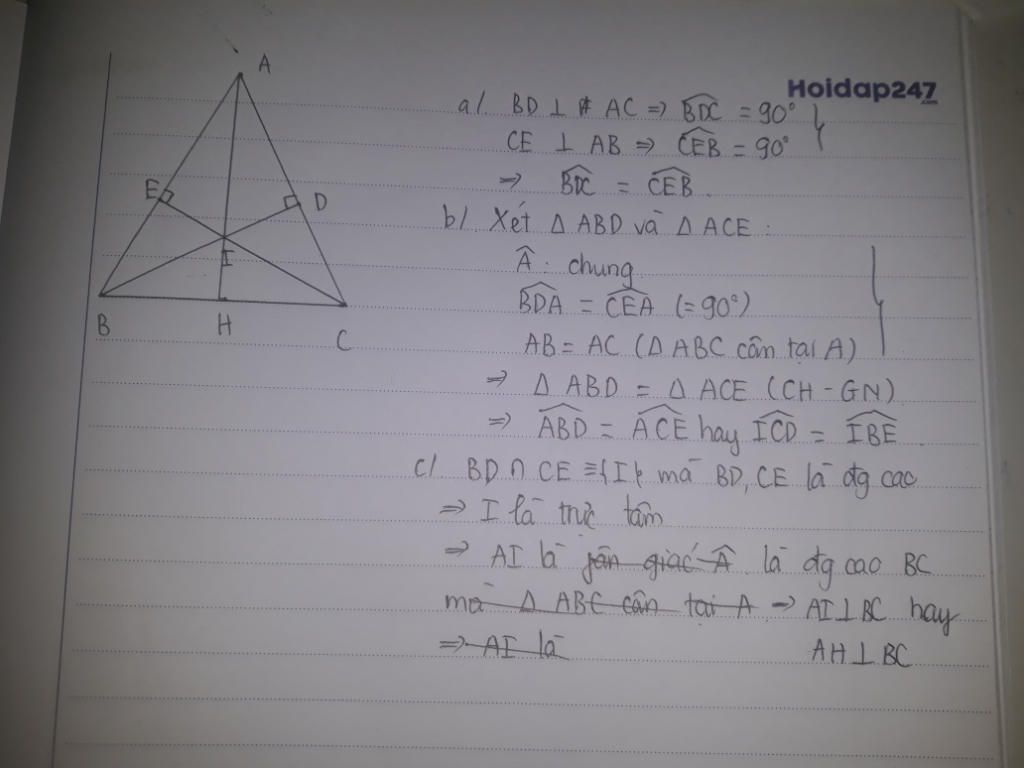 A
E
D
I
B
H
C
Hoidap247
a/. BD ⊥ AC ⇒ \widehat{BDC} = 90°
CE ⊥ AB ⇒ \widehat{CEB} = 90°
⇒ \widehat{BDC} = \widehat{CEB}.
b/ Xét Δ ABD và Δ ACE :
\widehat{A} : chung
\widehat{BDA} = \widehat{CEA} (= 90°)
AB = AC (Δ ABC cân tại A)
⇒ Δ ABD = Δ ACE (CH - GN)
⇒ \widehat{ABD} = \widehat{ACE} hay \widehat{ICD} = \widehat{IBE}.
c/ BD ∩ CE ≡ {I} mà BD, CE là đg cao
⇒ I là trực tâm
⇒ AI là phân giác \widehat{A} là đg cao BC
mà Δ ABC cân tại A ⇒ AI ⊥ BC hay
⇒ AI là AH ⊥ BC